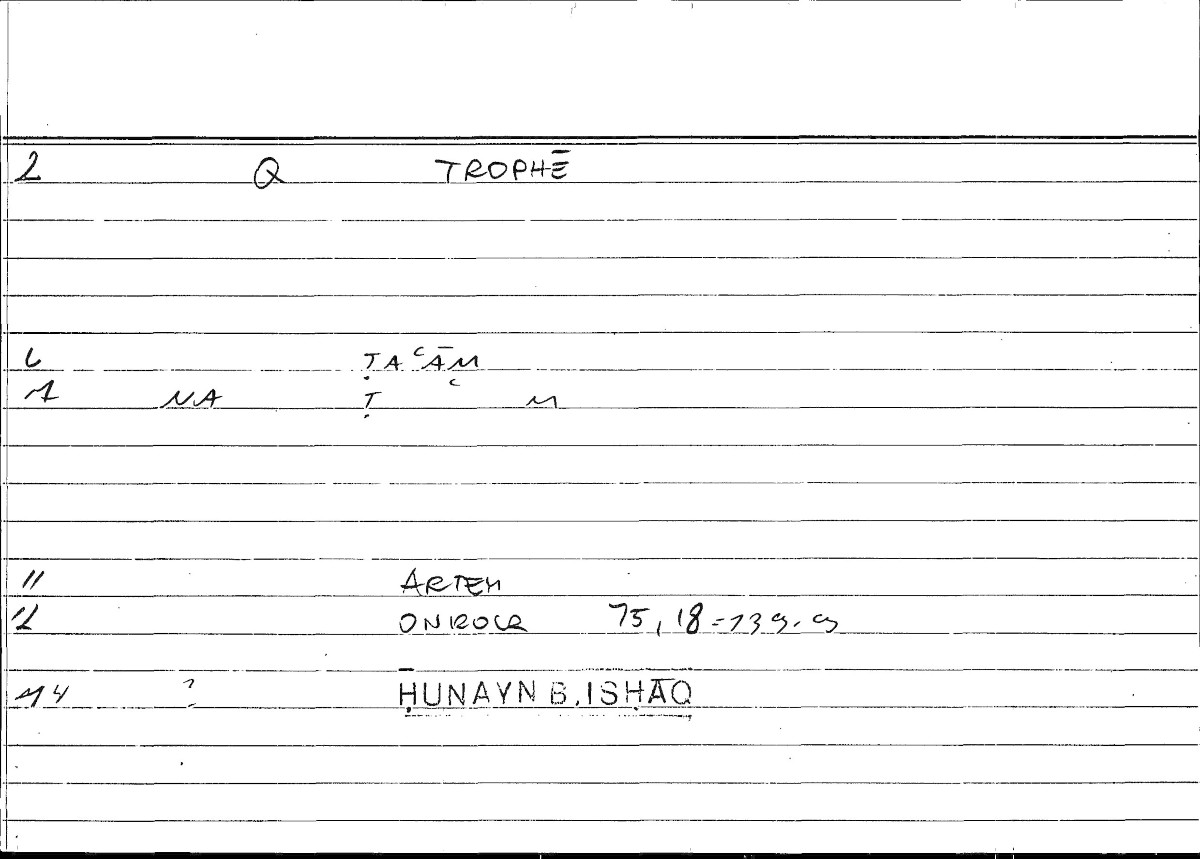 2 Q TROPHĒ
6 ṬAʿĀM
1 NA Ṭ ʿ M
11 ARTEM
12 ONIROCR 75,18 = 139.9
14 ? ḤUNAYN B. ISḤĀQ